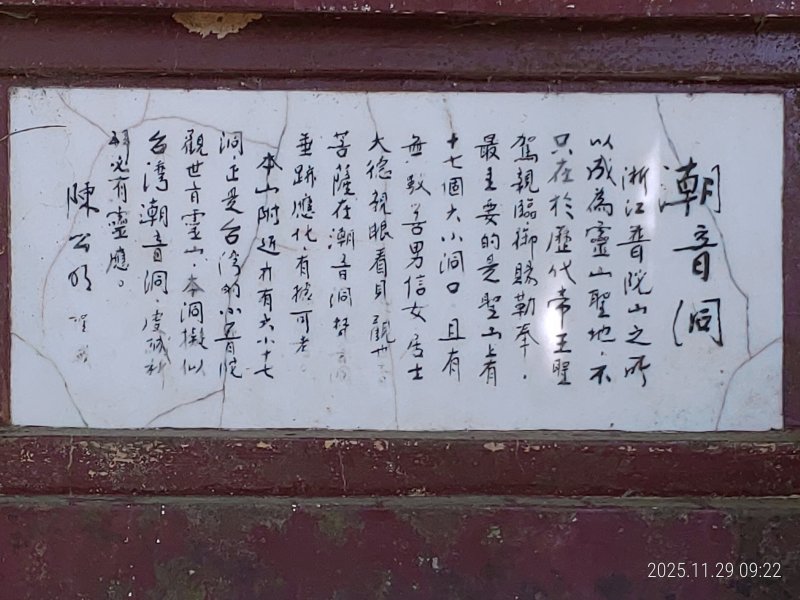 潮音洞
浙江普陀山之所
以成為靈山聖地.不
只在於歷代帝王聖
駕親臨.御賜勒奉.
最主要的是聖山上有
十七個大小洞口.且有
無數善男信女居士
大德親眼看見觀世音
菩薩在潮音洞
垂跡應化.有據可考
本山附近亦有大小十七
洞.正是台灣的小普陀
觀世音靈山.本洞擬似
台灣潮音洞.虔誠祈
必有靈應。
陳
2025.11.29 09:22